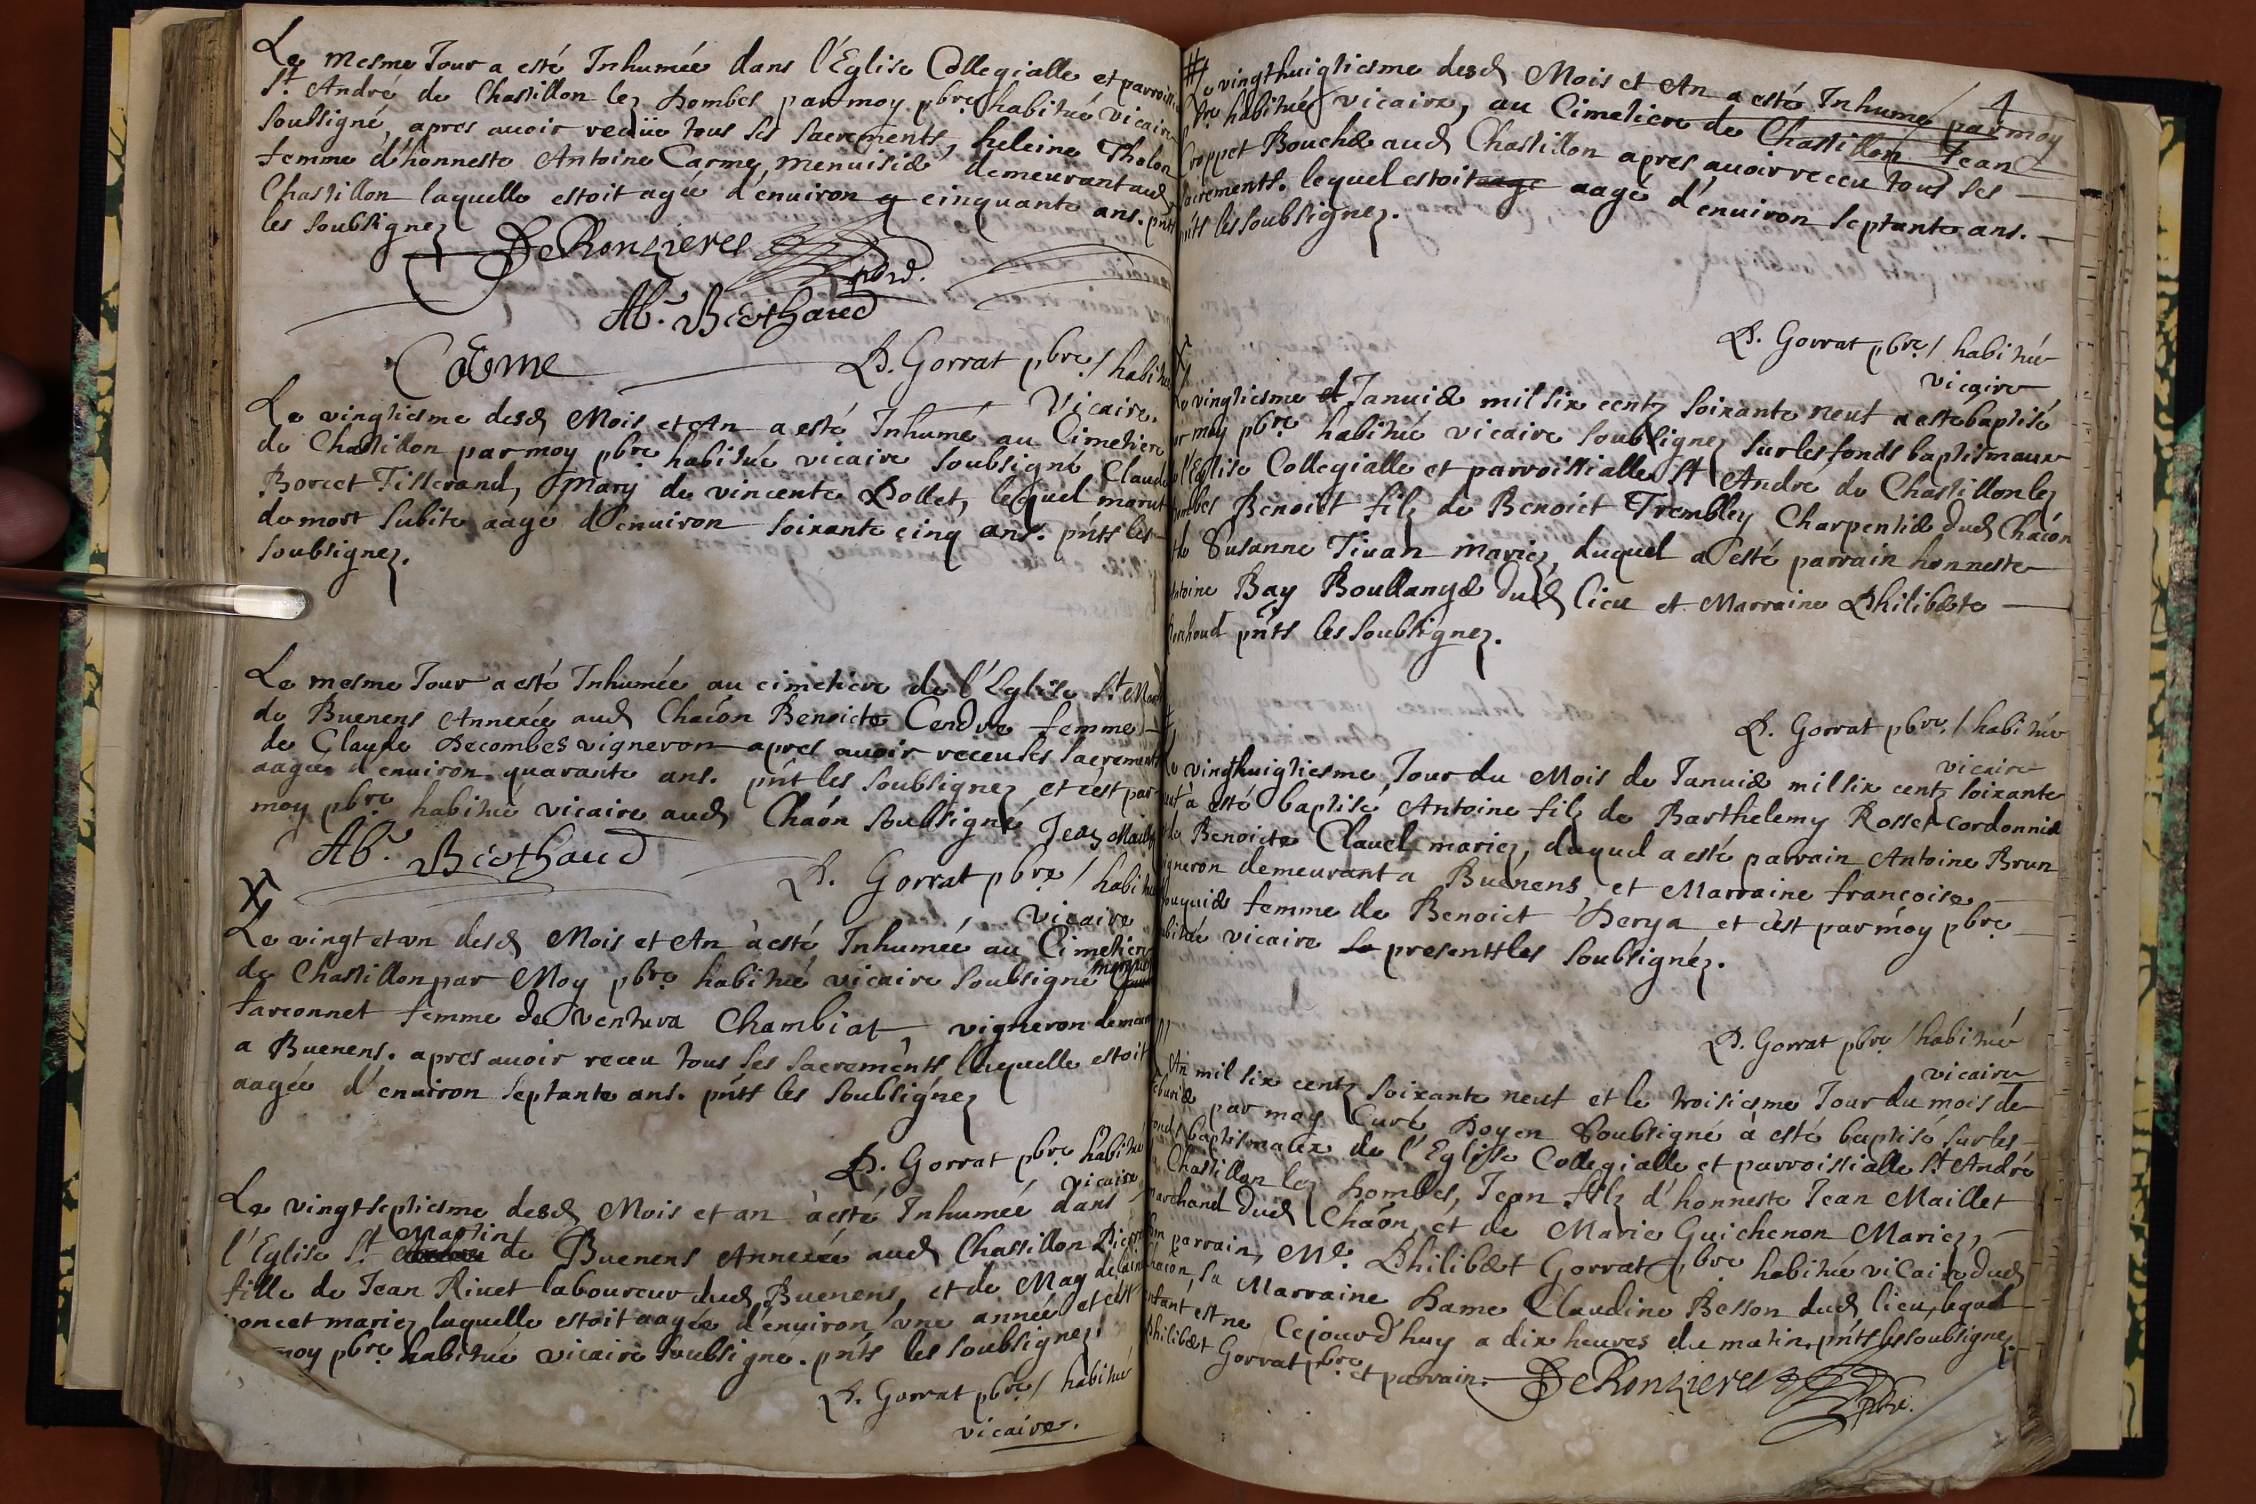 Le mesme Jour a esté Inhumée dans l'Eglise Collegialle et parroiss
St. André de Chastillon lez Dombes par moy pbre habitué vicaire
soubsigné, apres auoir reçüe tous ses sacrements, heleine Tholon
femme d'honneste Antoine Carme, menuisier demeurant aud
Chastillon laquelle estoit agée d'enuiron cinquante ans. pnts
les soubsignez
DeRonzieres pbre.
Ab. Berthaud
Carme
P. Gorrat pbre / habitué
Vicaire.
Le vingtiesme desd Mois et An a esté Inhumé au Cimetiere
de Chastillon par moy pbre habitué vicaire soubsigné Claud
Borcet Tisserand, mary de vincente Pollet, lequel mourut
de mort subite aagé d'enuiron soixante cinq ans. pnts les
soubsignez.
Le mesme Jour a esté Inhumée au cimetiere de l'Eglise St Mar
de Buenens Annexée aud Chaôn Benoicte Cendre femme
de Claude Decombes vigneron apres auoir receu les sacrements
aagée d'enuiron quarante ans. pnt les soubsignez et c'est par
moy pbre habitué vicaire aud Chaôn soubsigné Jean Maill
Ab. Berthaud
P. Gorrat pbre / habitué
Vicaire
Le vingt et vn desd Mois et An à esté Inhumée au Cimetiere
de Chastillon par Moy pbre habitué vicaire soubsigné
farconnet femme de Ventura Chambiat, vigneron demeur
a Buenens. apres auoir receu tous ses sacrements laquelle estoit
aagée d'enuiron septante ans. pnts les soubsignéz
P. Gorrat pbre habitué
vicaire
Le vingtseptiesme desd Mois et an à esté Inhumée dans
Martin
l'Eglise St de Buenens Annexée aud Chastillon Pierr
fille de Jean Riuet laboureur dud Buenens, et de Magdelaine
poncet mariez laquelle estoit aagée d'enuiron vne année et c'est
moy pbre habitué vicaire soubsigne. pnts les soubsignez
P. Gorrat pbre / habitué
vicaire.
4
Le vingthuigtiesme desd Mois et An a esté Inhumé par moy
pbre habitué vicaire, au Cimetiere de Chastillon Jean
Croppet Boucher aud Chastillon apres auoir receu tous ses
sacrements. lequel estoit aage aagé d'enuiron septante ans.
pnts les soubsignez.
P. Gorrat pbre / habitué
vicaire
Le vingtiesme Januier mil six centz soixante neuf a esté baptisé
par moy pbre habitué vicaire soubsignez sur les fonds baptismaux
de l'Eglise Collegialle et parroissialle St Andre de Chastillon lez
Dombes Benoist filz de Benoict Trembley Charpentier dud Chaôn
Susanne Tiuan mariez, duquel a esté parrain honneste
Antoine Bay Boullanger dud Lieu et Marraine Philiberte
pnts les soubsignez.
P. Gorrat pbre / habitué
vicaire
Le vingthuigtiesme Jour du Mois de Januier mil six centz soixante
neuf à esté baptisé Antoine filz de Barthelemy Rosset cordonnier
et de Benoicte Clauel mariez, duquel a esté parrain Antoine Brun
vigneron demeurant a Buenens, et Marraine françoise
femme de Benoict Derya et c'est par môy pbre
habitué vicaire presentts les soubsignéz.
P. Gorrat pbre / habitué
vicaire
L'An mil six centz soixante neuf et le troisiesme Jour du mois de
feburier par moy Curé Doyen soubsigné à esté baptisé sur les
fonds baptismaux de l'Eglise Collegialle et parroissialle St André
de Chastillon lez Dombes, Jean filz d'honneste Jean Maillet
marchand dud Chaôn, et de Marie Guichenon Mariez,
son parrain, Mre Philibert Gorrat pbre habitué viCaire dud
Chaôn, sa Marraine Dame Claudine Besson dud lieu, lequel
enfant est ne Cejourd'huy a dix heures du matin, pnts les soubsignez
Philibert Gorrat pbre et parrain. DeRonzieres pbre.